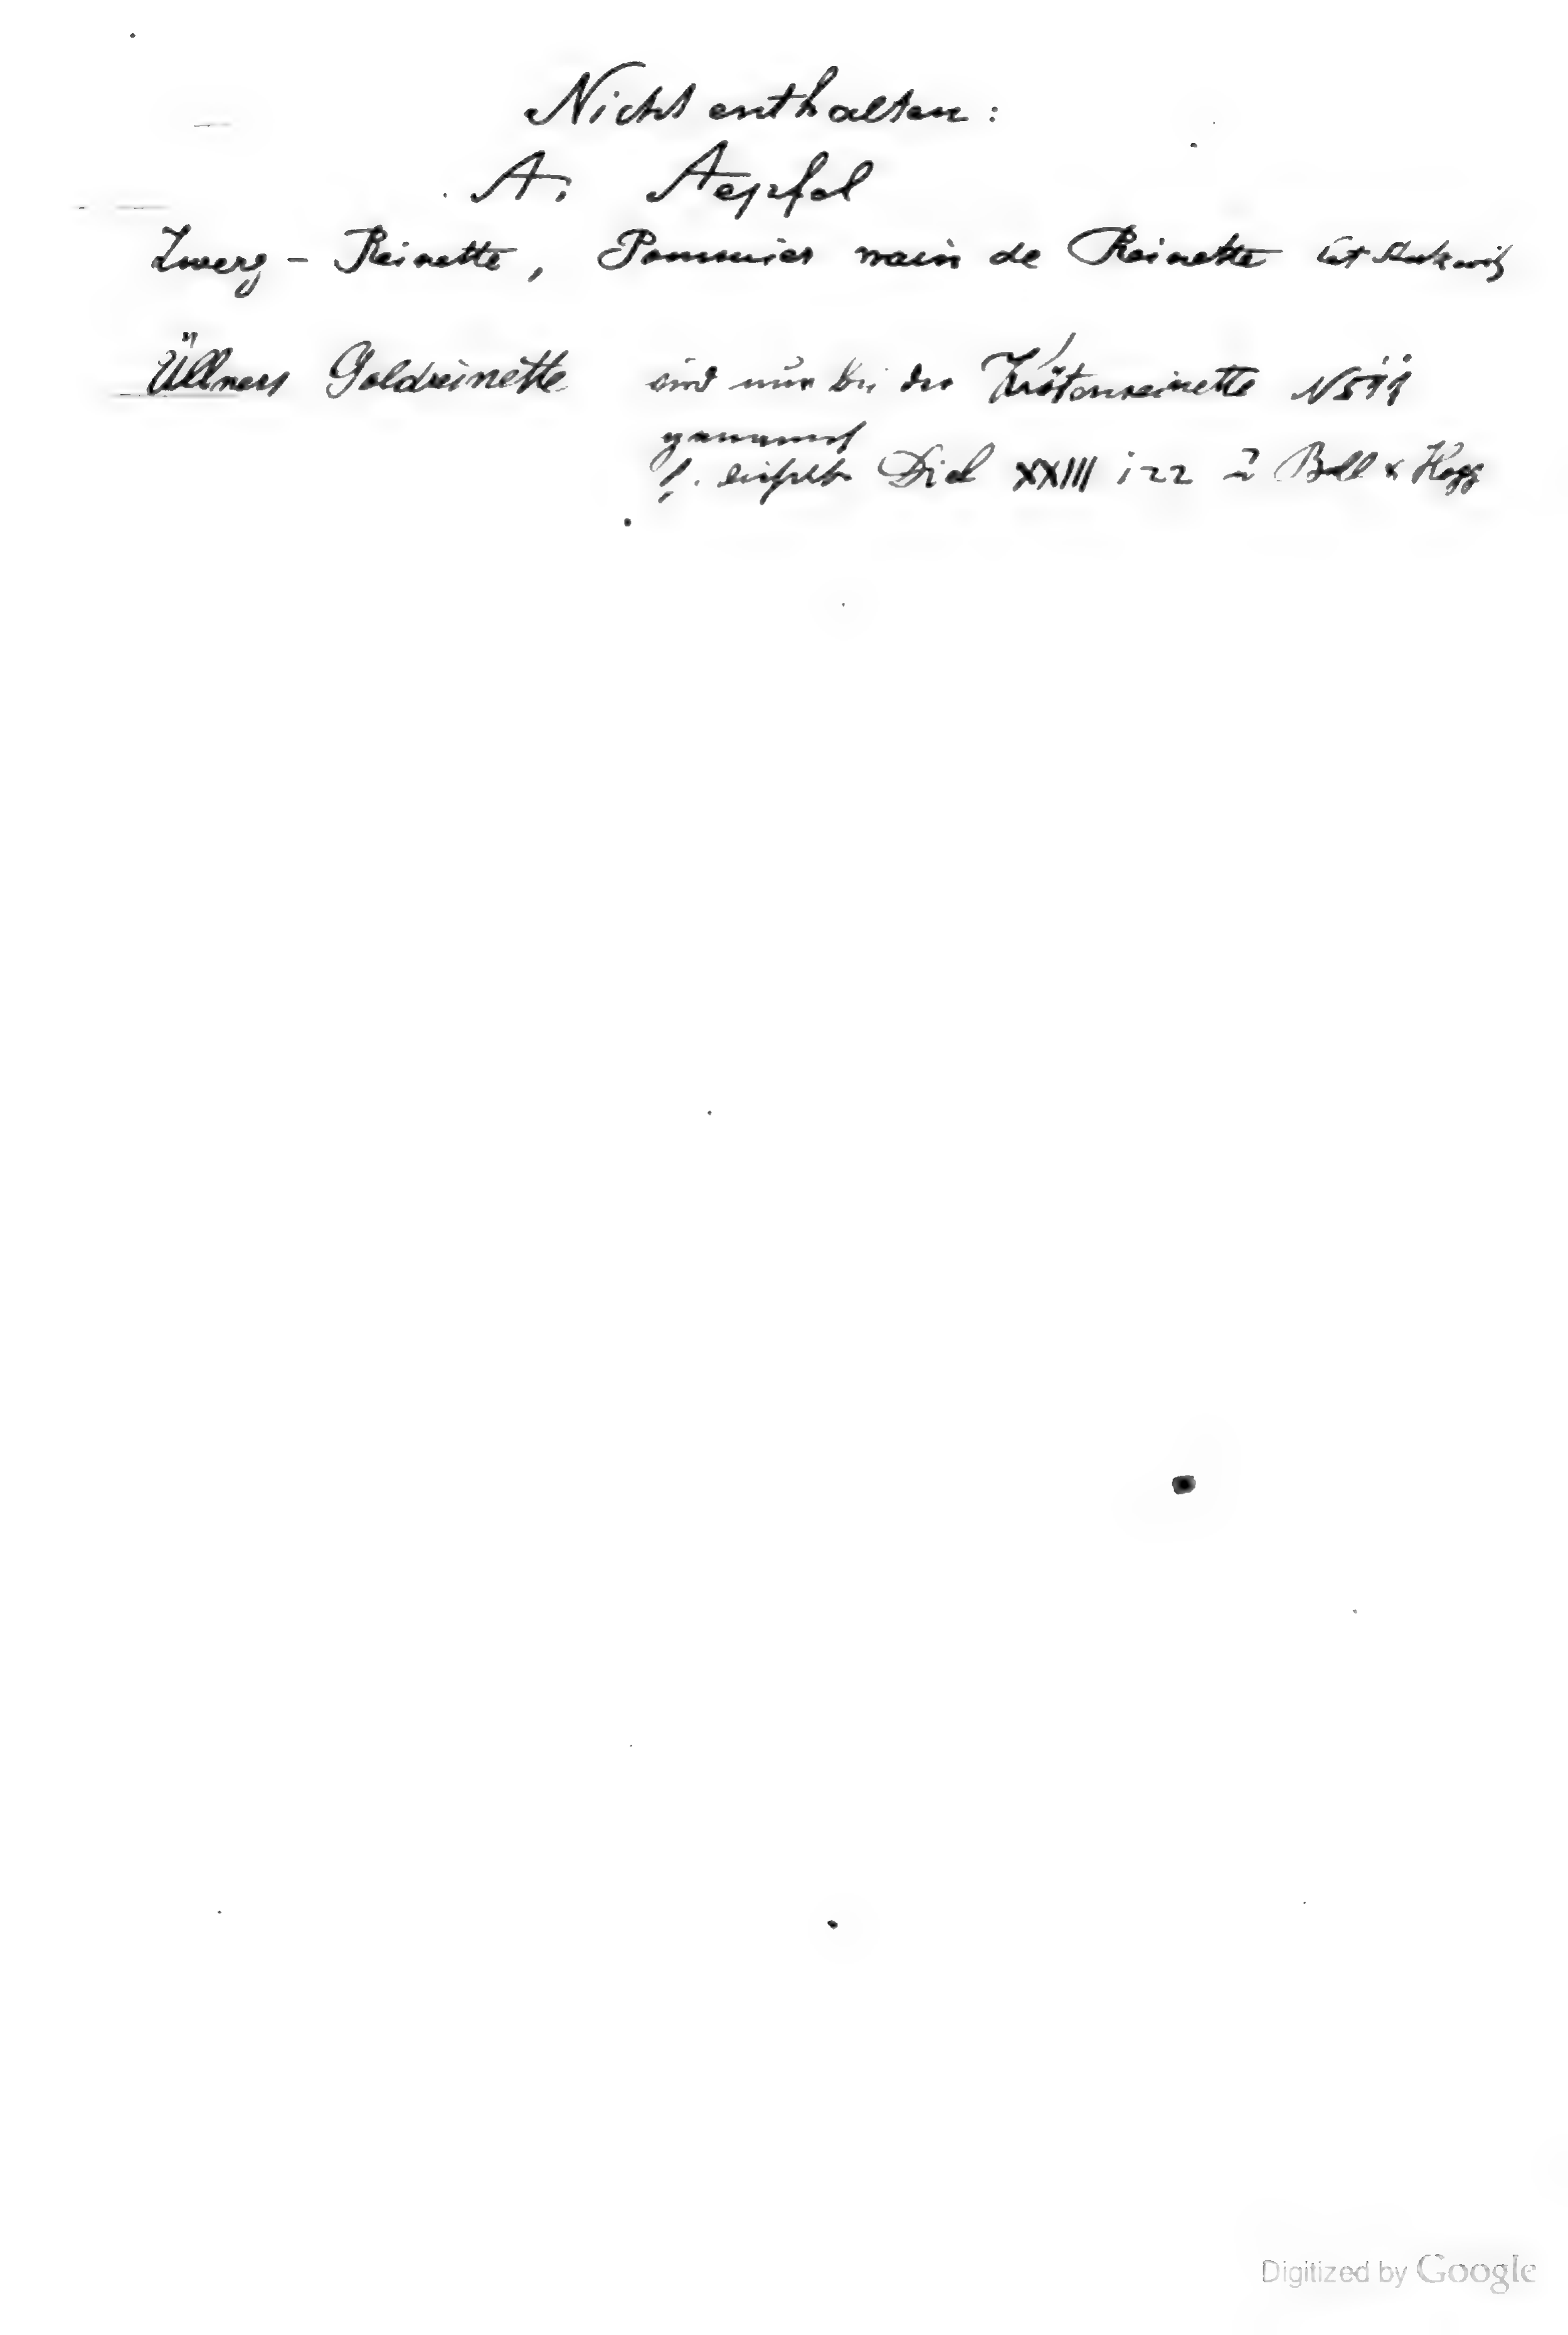 Nicht enthalten:
A. Aepfel
Zwerg - Reinette, Pommier nain de Reinette ist
Üllners Goldreinette wird nur bei der Krötenreinette N 511
genannt
s. Diel XXIII 122 u Boll & Hogg
Digitized by Google